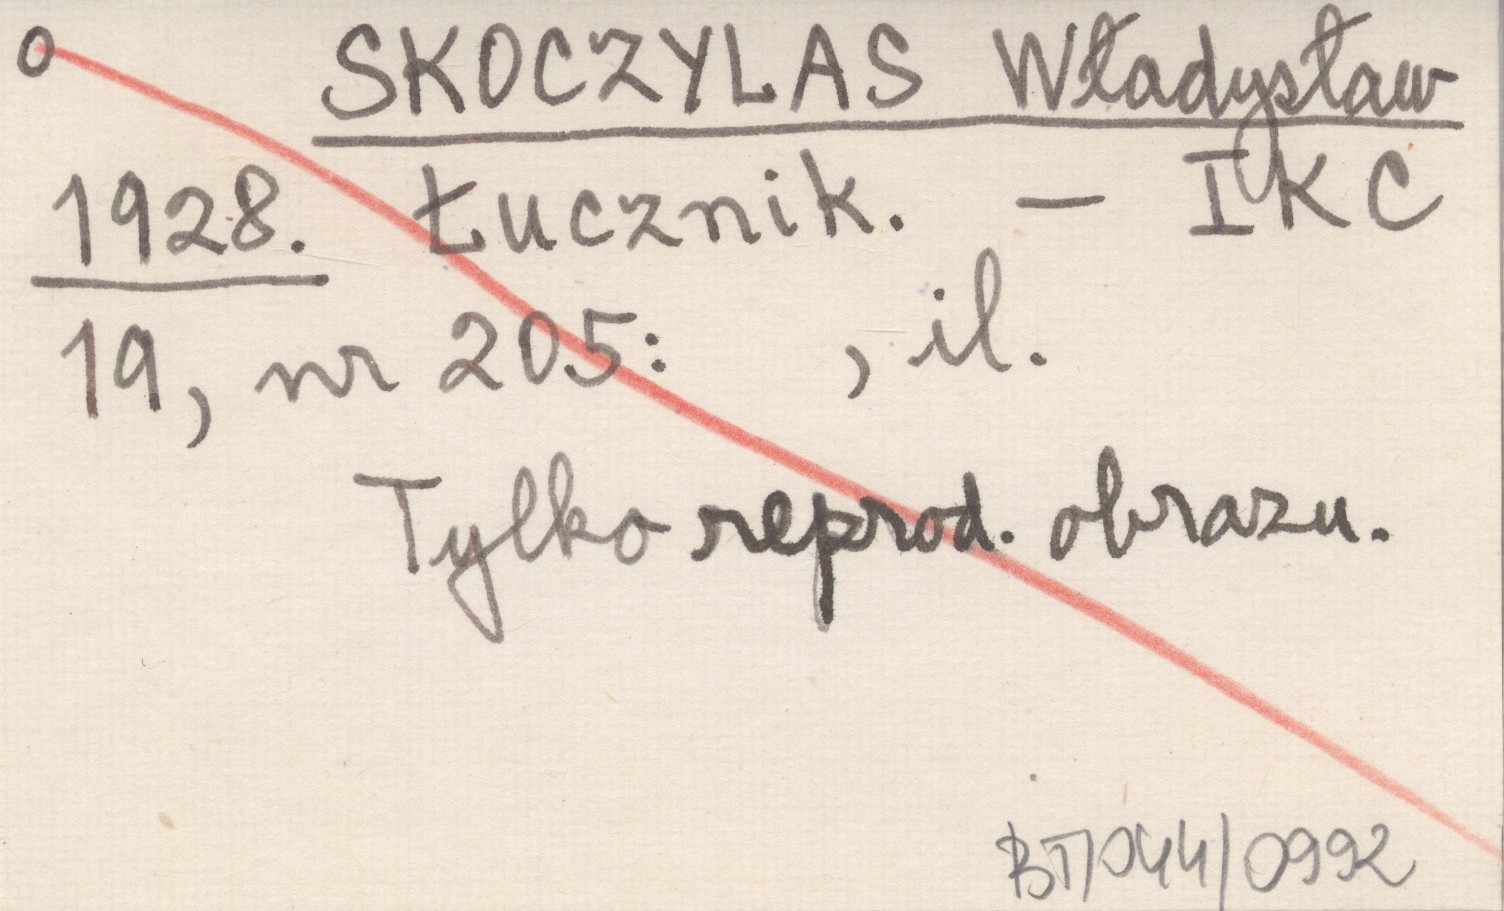 0 SKOCZYLAS Władysław
1928. Łucznik. — IKC
19, nr 205: , il.
Tylko reprod. obrazu.
BT/044/0992